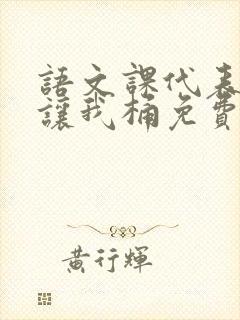 語文課代表
讓我桶免費
黃行輝